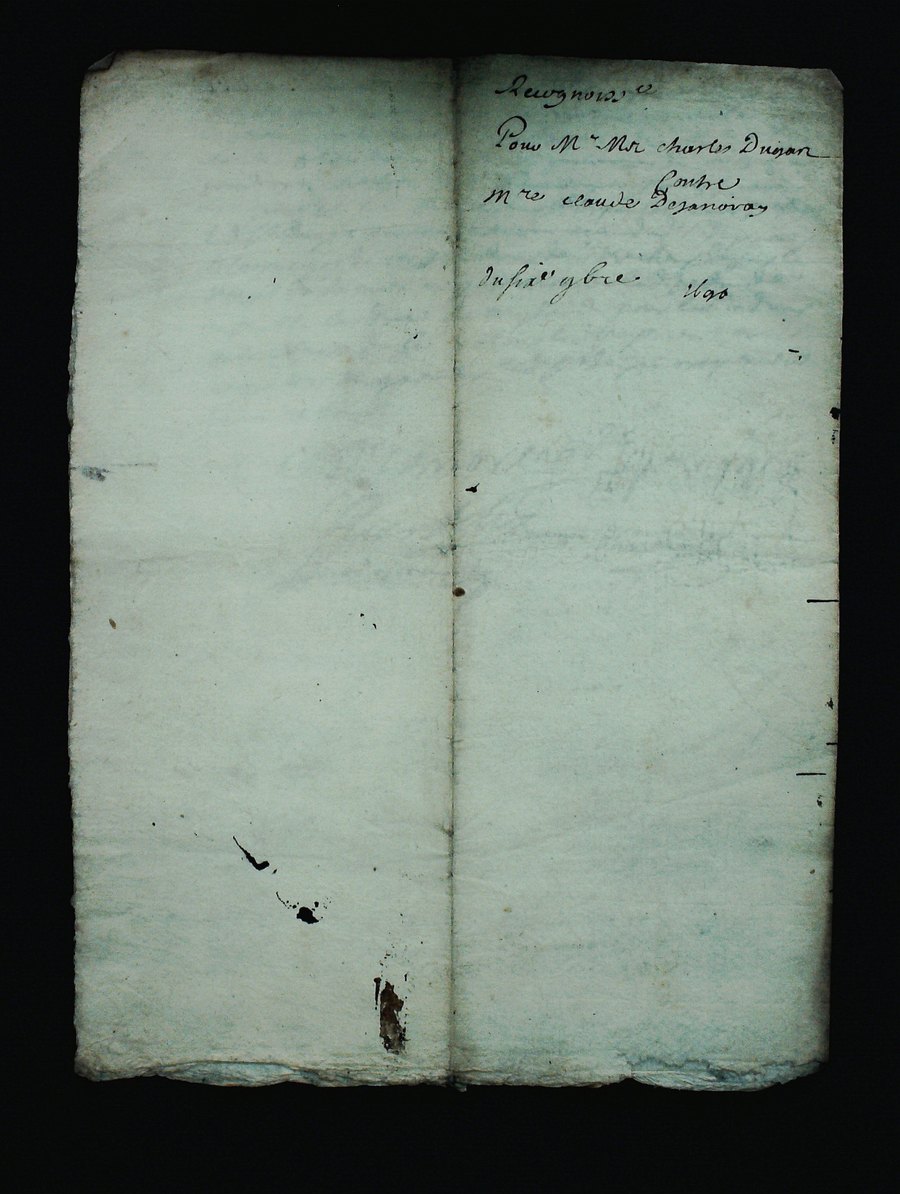 Recognoiss ce
Pour Mr Mre charles Dujan
Contre
Mre claude Dejanoray
du six e 9bre 1690